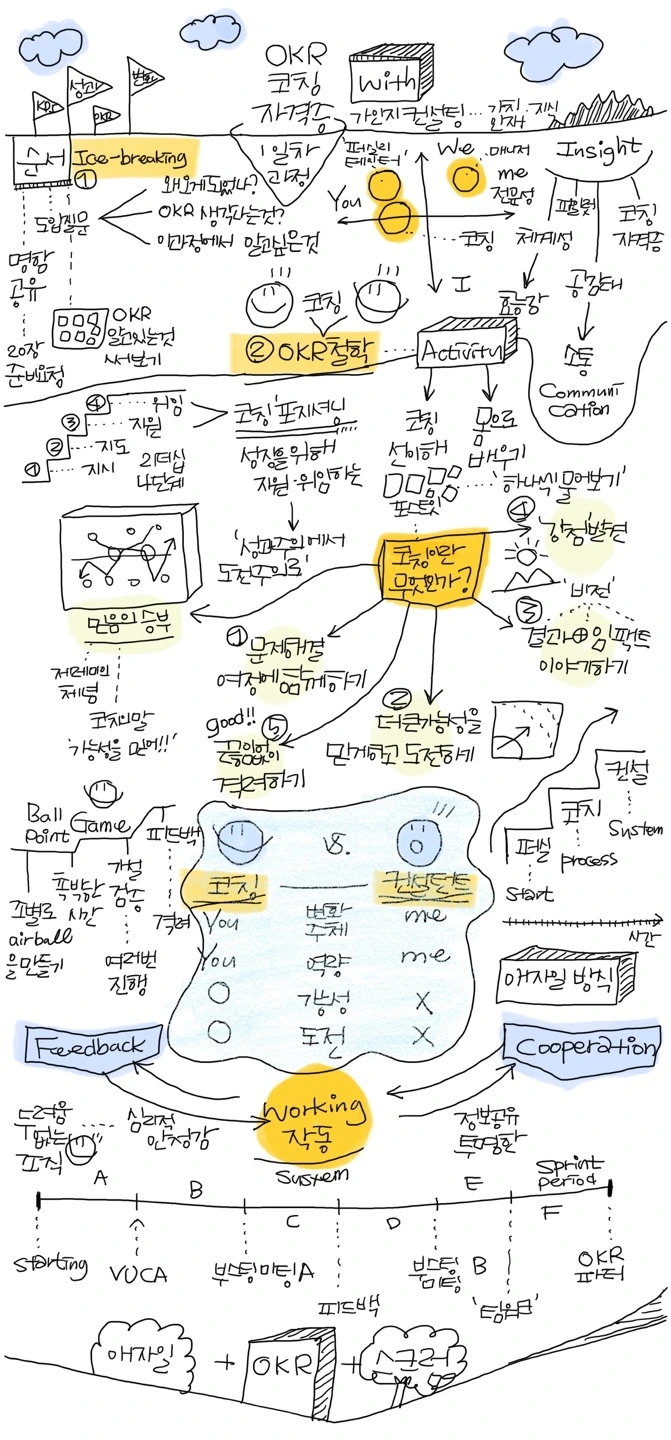 OKR
코칭
자격증
With
가인지컨설팅
KR
성과
OKR
변화
순서
Ice-breaking
①
1일차
과정
"퍼실리
테이터"
We
매니저
me
전문성
You
I
코칭
Insight
파일럿
코칭
자격증
체계성
효능감
공감대
소통
Communi
cation
도입질문
왜오게되었나?
OKR 생각나는것?
이과정에서 알고싶은것
명함
공유
20장
준비요청
OKR
알고있는것
써보기
코칭
② OKR철학
Activity
코칭
선이해
포스트잇
몸으로
배우기
'하나씩 물어보기'
④ 위임
③ 지원
② 지도
① 지시
리더십
4단계
코칭'포지셔닝
성장을위해
지원·위임하는
'성과주의에서
도전주의로'
코칭이란
무엇인가?
④
'강점'발견
'비전'
③
결과⊕임팩트
이야기하기
①
문제해결
여정에함께하기
②
더큰가능성을
믿게하고 도전하기
good!!
⑤
끊임없이
격려하기
믿음의 승부
코치의말
'가능성을 믿어!!'
Ball
Point
Game
피드백
조별로
airball
을만들기
촉박한
시간
가설
검증
여러번
진행
격려
VS.
코칭
컨설턴트
You
변화
주체
me
You
역량
me
○
가능성
X
○
도전
X
컨설
System
코치
process
퍼실
start
시간
애자일 방식
Feedback
Cooperation
Working
작동
System
두려움
없는
조직
심리적
안정감
정보공유
투명화
A
B
C
D
E
Sprint
period
F
starting
VUCA
부스팅미팅A
피드백
부스팅
미팅
B
'팀워크'
OKR
파티
애자일
+
OKR
+
스크럼